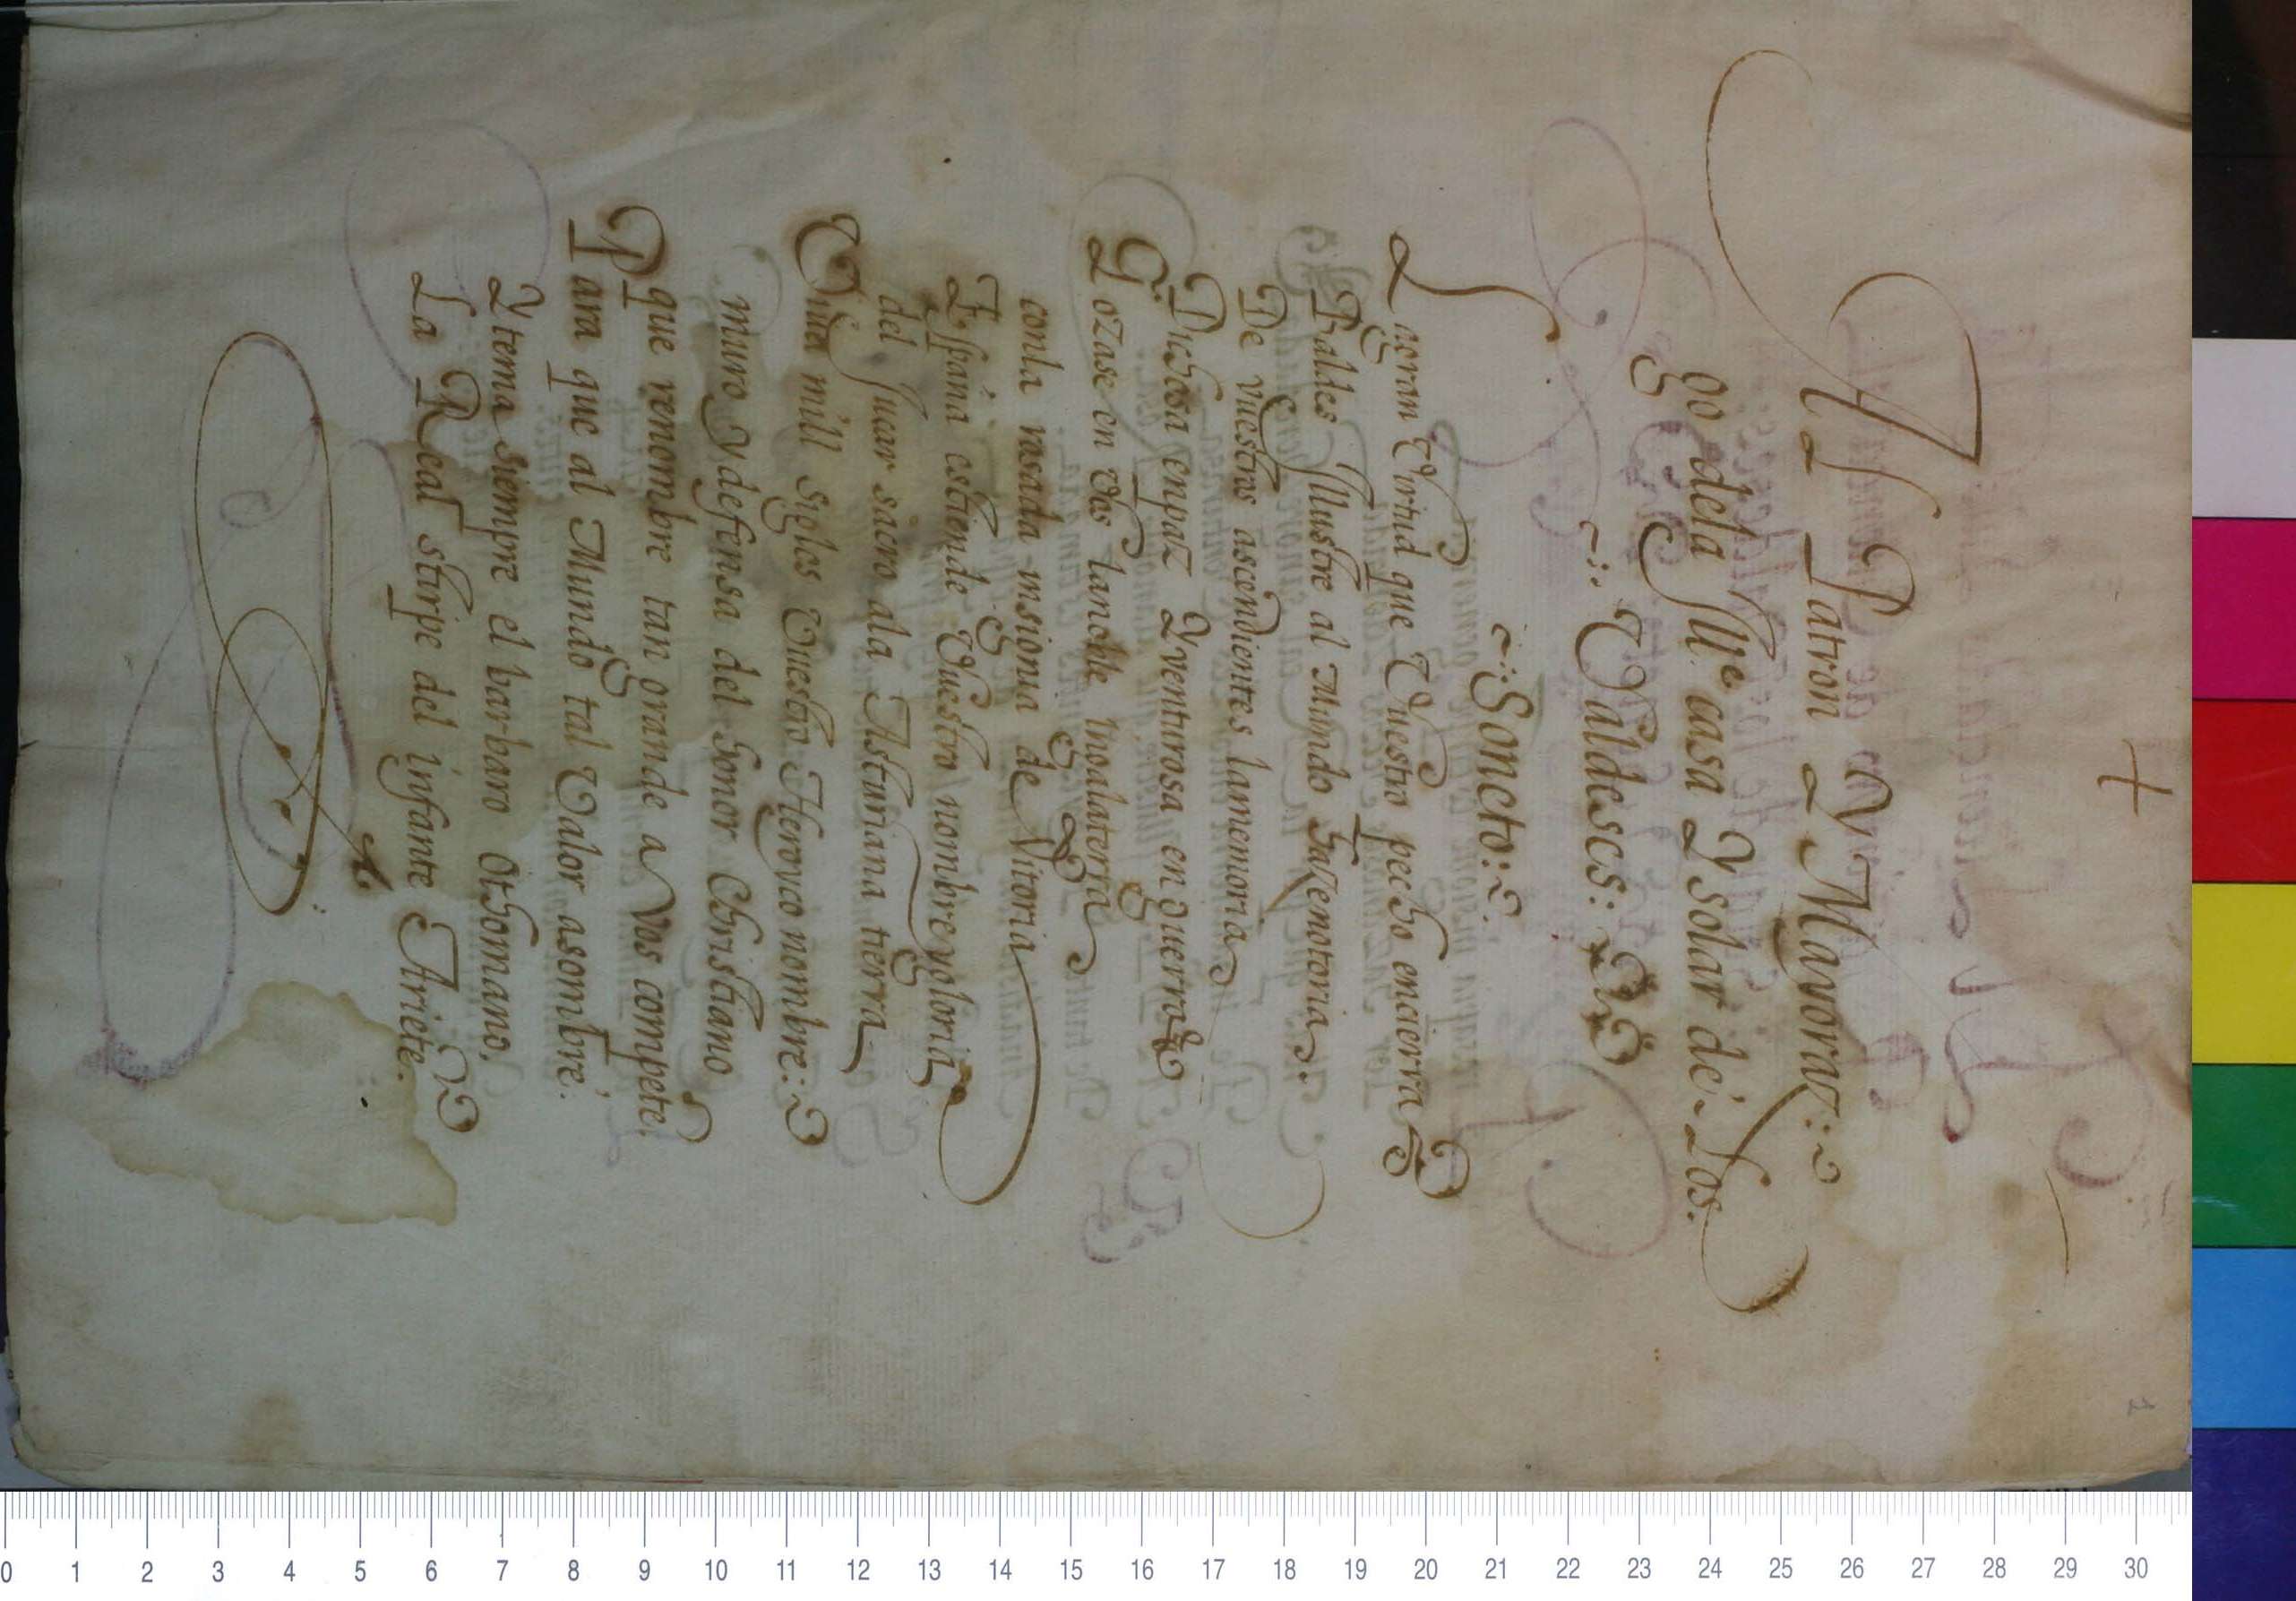 +
1
Al Patron Y Mayoraz:
go dela Ill.e casa Y solar de Los.
Valdeses:
Soneto:
La gran Virtud que Vuestro pecho encierra
Baldes Illustre al Mundo haze notoria
De vuestros ascendientes la memoria
Dichosa en paz Y venturosa en guerra
Gozase en Vos la noble Inglaterra
con la rasada insignia de Vitoria
España estiende Vuestro nombre y gloria
del lugar sacro a la Asturiana tierra
Viua mill siglos Vuestro Heroyco nombre:
muro Y defensa del honor Christiano
que renombre tan grande a Vos compete.
Para que al Mundo tal Valor asombre.
Y tema siempre el barbaro Othomano.
La Real stirpe del infante Ariete.
0 1 2 3 4 5 6 7 8 9 10 11 12 13 14 15 16 17 18 19 20 21 22 23 24 25 26 27 28 29 30